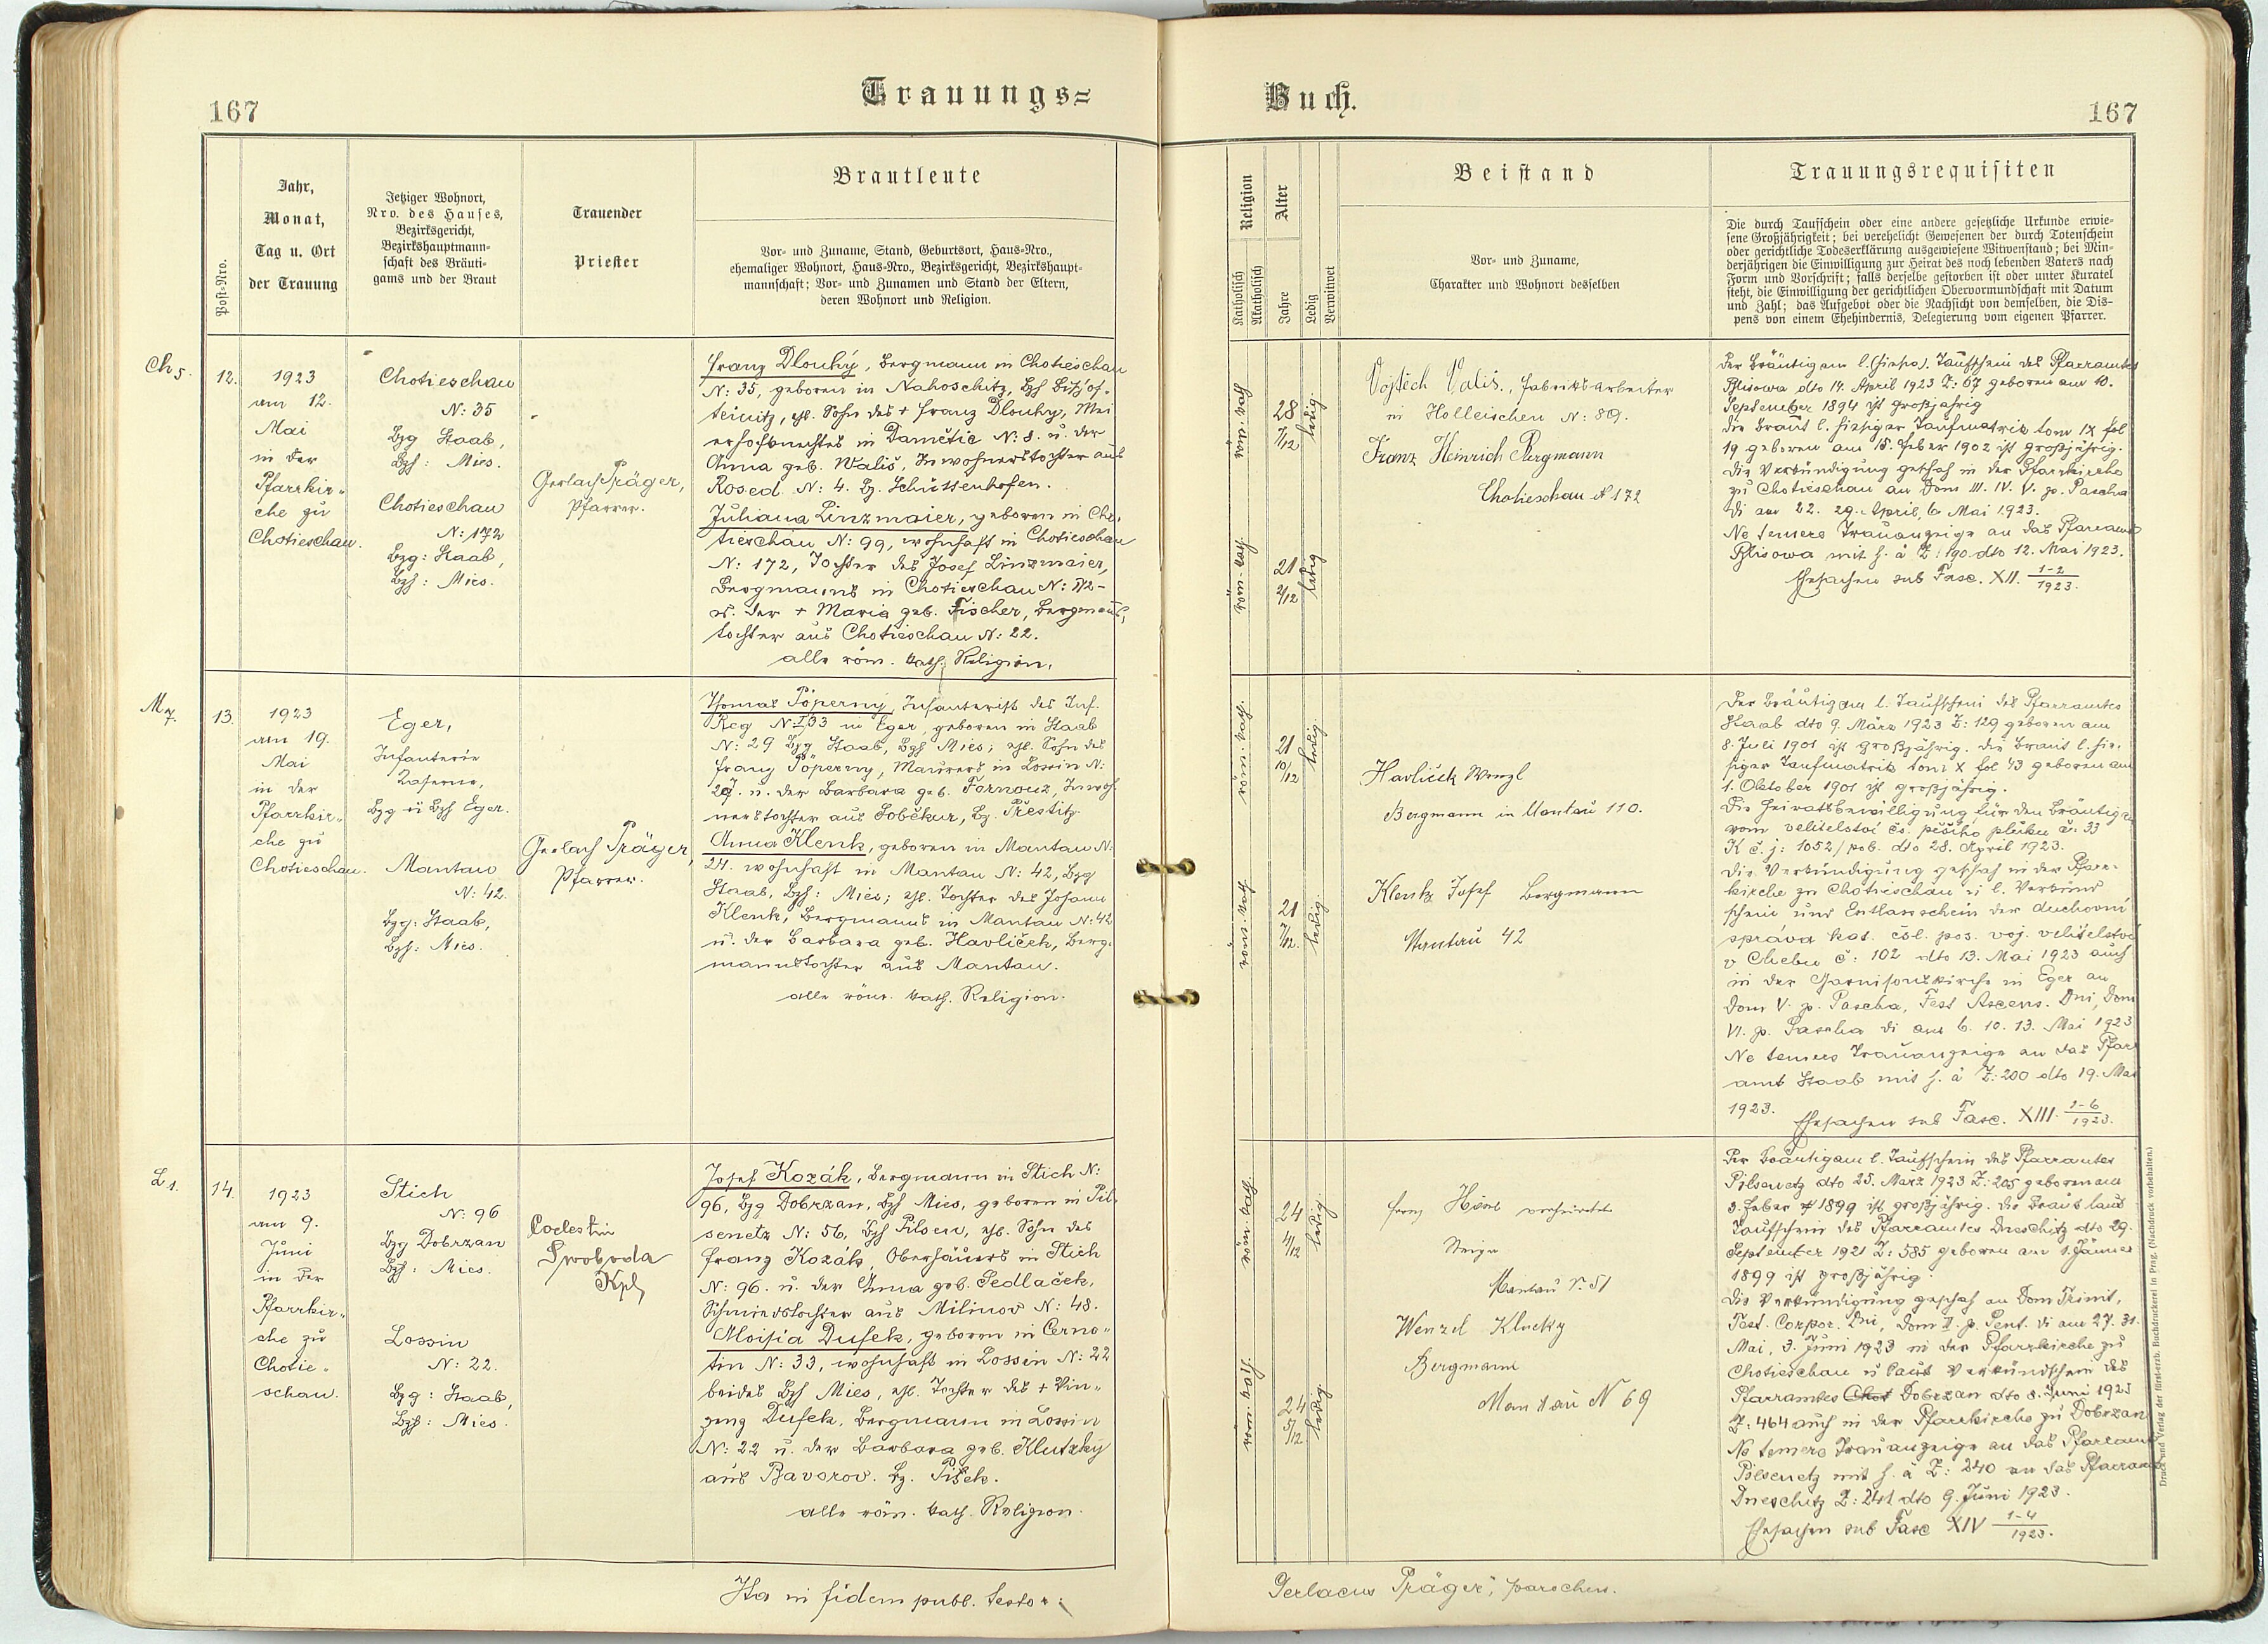 167
Trauungs=
Post-Nro.
Jahr,
Monat,
Tag u. Ort
der Trauung
Jetziger Wohnort,
Nro. des Hauses,
Bezirksgericht,
Bezirkshauptmann-
schaft des Bräuti-
gams und der Braut
Trauender
Priester
Brautleute
Vor- und Zuname, Stand, Geburtsort, Haus-Nro.,
ehemaliger Wohnort, Haus-Nro., Bezirksgericht, Bezirkshaupt-
mannschaft; Vor- und Zunamen und Stand der Eltern,
deren Wohnort und Religion.
Ch 5.
12.
1923
am 12.
Mai
in der
Pfarrkir-
che zu
Chotieschau.
Chotieschau
N: 35
Bzg Staab,
Bzh: Mies.
Chotieschau
N: 172
Bzg: Staab,
Bzh: Mies.
Gerlach Präger,
Pfarrer.
Franz Dlouhý, Bergmann in Chotieschau
N: 35, geboren in Nahoschitz, Bzh Bischof-
teinitz, ehl. Sohn des + Franz Dlouhy, Mei
erhofknechtes in Damětic N: 8. u. der
Anna geb. Wališ, Inwohnerstochter aus
Rosed N: 4. Bz. Schüttenhofen.
Juliana Linzmaier, geboren in Cho-
tieschau N: 99, wohnhaft in Chotieschau
N: 172, Tochter des Josef Linzmaier,
Bergmanns in Chotieschau N: 172-
u. der + Maria geb. Fischer, Bergmanns
tochter aus Chotieschau N: 22.
alle röm. kath. Religion.
M 7.
13.
1923
am 19.
Mai
in der
Pfarrkir-
che zu
Chotieschau.
Eger,
Infanterie
Kaserne,
Bzg u Bzh Eger.
Mantau
N: 42.
Bzg: Staab,
Bzh: Mies.
Gerlach Präger,
Pfarrer.
Thomas Pöperny, Infanterist des Inf.
Reg N: 33 in Eger, geboren in Staab
N: 29 Bzg Staab, Bzh Mies; ehl. Sohn des
Franz Pöperny, Maurers in Lossin N:
27. u. der Barbara geb. Fornouz, Inwoh-
nerstochter aus Soběkur, Bz. Přestitz.
Anna Klenk, geboren in Mantau N:
24. wohnhaft in Mantau N: 42, Bzg
Staab, Bzh: Mies; ehl. Tochter des Johann
Klenk, Bergmanns in Mantau N: 42
u. der Barbara geb. Havlíček, Berg-
mannstochter aus Mantau.
alle röm. kath. Religion.
L 1.
14.
1923
am 9.
Juni
in der
Pfarrkir-
che zu
Chotie-
schau.
Stich
N: 96
Bzg Dobrzan
Bzh: Mies.
Lossin
N: 22.
Bzg: Staab,
Bzh: Mies.
Coelestin
Swoboda
Kpl
Josef Kozák, Bergmann in Stich N:
96, Bzg Dobrzan, Bzh Mies, geboren in Pil-
senetz N: 56, Bzh Pilsen, ehl. Sohn des
Franz Kozák, Oberhäuers in Stich
N: 96. u. der Anna geb. Sedlaček,
Schmiedstochter aus Milinov N: 48.
Aloisia Dušek, geboren in Černo-
tin N: 33, wohnhaft in Lossin N: 22
beides Bzh Mies, ehl. Tochter des + Vin-
zenz Dušek, Bergmann in Lossin
N: 22 u. der Barbara geb. Klutzky
aus Bavorov. Bz. Pišek.
alle röm. kath. Religion.
Ita in fidem publ. testor:
Buch.
167
Religion
Katholisch
Akatholisch
Alter
Jahre
Ledig
Verwitwet
Beistand
Vor- und Zuname,
Charakter und Wohnort desselben
Trauungsrequisiten
Die durch Taufschein oder eine andere gesetzliche Urkunde erwie-
sene Großjährigkeit; bei verehelicht Gewesenen der durch Totenschein
oder gerichtliche Todeserklärung ausgewiesene Witwenstand; bei Min-
derjährigen die Einwilligung zur Heirat des noch lebenden Vaters nach
Form und Vorschrift; falls derselbe gestorben ist oder unter Kuratel
steht, die Einwilligung der gerichtlichen Obervormundschaft mit Datum
und Zahl; das Aufgebot oder die Nachsicht von demselben, die Dis-
pens von einem Ehehindernis, Delegierung vom eigenen Pfarrer.
röm. kath
28
7/12
ledig.
röm. kath.
21
2/12
ledig
Vojtěch Vališ, Fabriksarbeiter
in Holleischen N: 89.
Franz Heinrich Bergmann
Chotieschau N 172
Der Bräutigam l. Taufschein des Pfarramtes
Blisowa dto 14. April 1923 Z: 67 geboren am 10.
September 1894 ist großjährig
die Braut l. hiesiger Taufmatrik tom IX fol
19 geboren am 18. Feber 1902 ist großjährig.
Die Verkündigung geschah in der Pfarrkirche
zu Chotieschau an Dom III. IV. V. p. Pascha
di am 22. 29. April, 6 Mai 1923.
Ne temere Trauanzeige an das Pfarramt
Blisowa mit h. ä Z: 190 dto 12. Mai 1923.
Ehesachen sub Fasc. XII. 1-2/1923.
röm. kath.
21
10/12
ledig
röm. kath
21
7/12.
ledig.
Havlicek Wenzl
Bergmann in Mantau 110.
Klenk Josef Bergmann
Mantau 42
Der Bräutigam l. Taufschein des Pfarramtes
Staab dto 9. März 1923 Z: 129 geboren am
8. Juli 1901 ist großjährig. die Braut l. hie-
siger Taufmatrik tom X fol 43 geboren am
1. Oktober 1901 ist großjährig.
Die Heiratsbewilligung für den Bräutigam
vom velitelství čs. pěšího pluku č: 33
K č. j: 1052/pob. dto 28. April 1923.
Die Verkündigung geschah in der Pfarr-
kirche zu Chotieschau u l. Verkünd
schein und Entlasschein der duchovní
správa kat. čsl. pos. voj. velitelství
v Chebu č: 102 dto 13. Mai 1923 auch
in der Garnisonskirche in Eger an
Dom V. p. Pascha, Fest Ascens. Dni, Dom
VI. p. Pascha di am 6. 10. 13. Mai 1923
Ne temere Trauanzeige an das Pfarr
amt Staab mit h. ä Z: 200 dto 19. Mai
1923.
Ehesachen sub Fasc. XIII. 1-6/1923.
röm. kath.
24
4/12
ledig
röm. kath.
24
5/12
ledig.
verheiratet
Steiger
Mantau N. 51
Wenzel Klucky
Bergmann
Mantau N 69
Der Bräutigam l. Taufschein des Pfarramtes
Pilsenetz dto 25. März 1923 Z: 205 geboren am
3. Feber 1899 ist großjährig. die Braut laut
Taufschein des Pfarramtes Dneschitz dto 29.
September 1921 Z: 585 geboren am 1. Jänner
1899 ist großjährig.
Die Verkündigung geschah an Dom Trinit,
Fest. Corpor. Dni, Dom II. p. Pent. di am 27. 31.
Mai, 3. Juni 1923 in der Pfarrkirche zu
Chotieschau u laut Verkündschein des
Pfarramtes Chot Dobrzan dto 8. Juni 1923
Z: 464 auch in der Pfarrkirche zu Dobrzan
Ne temere Trauanzeige an das Pfarramt
Pilsenetz mit h. ä Z: 240 an das Pfarramt
Dneschitz Z: 241 dto 9. Juni 1923.
Ehesachen sub Fasc XIV 1-4/1923.
Druck und Verlag der fürst-erzb. Buchdruckerei in Prag. (Nachdruck vorbehalten.)
Gerlacus Präger, parochus.